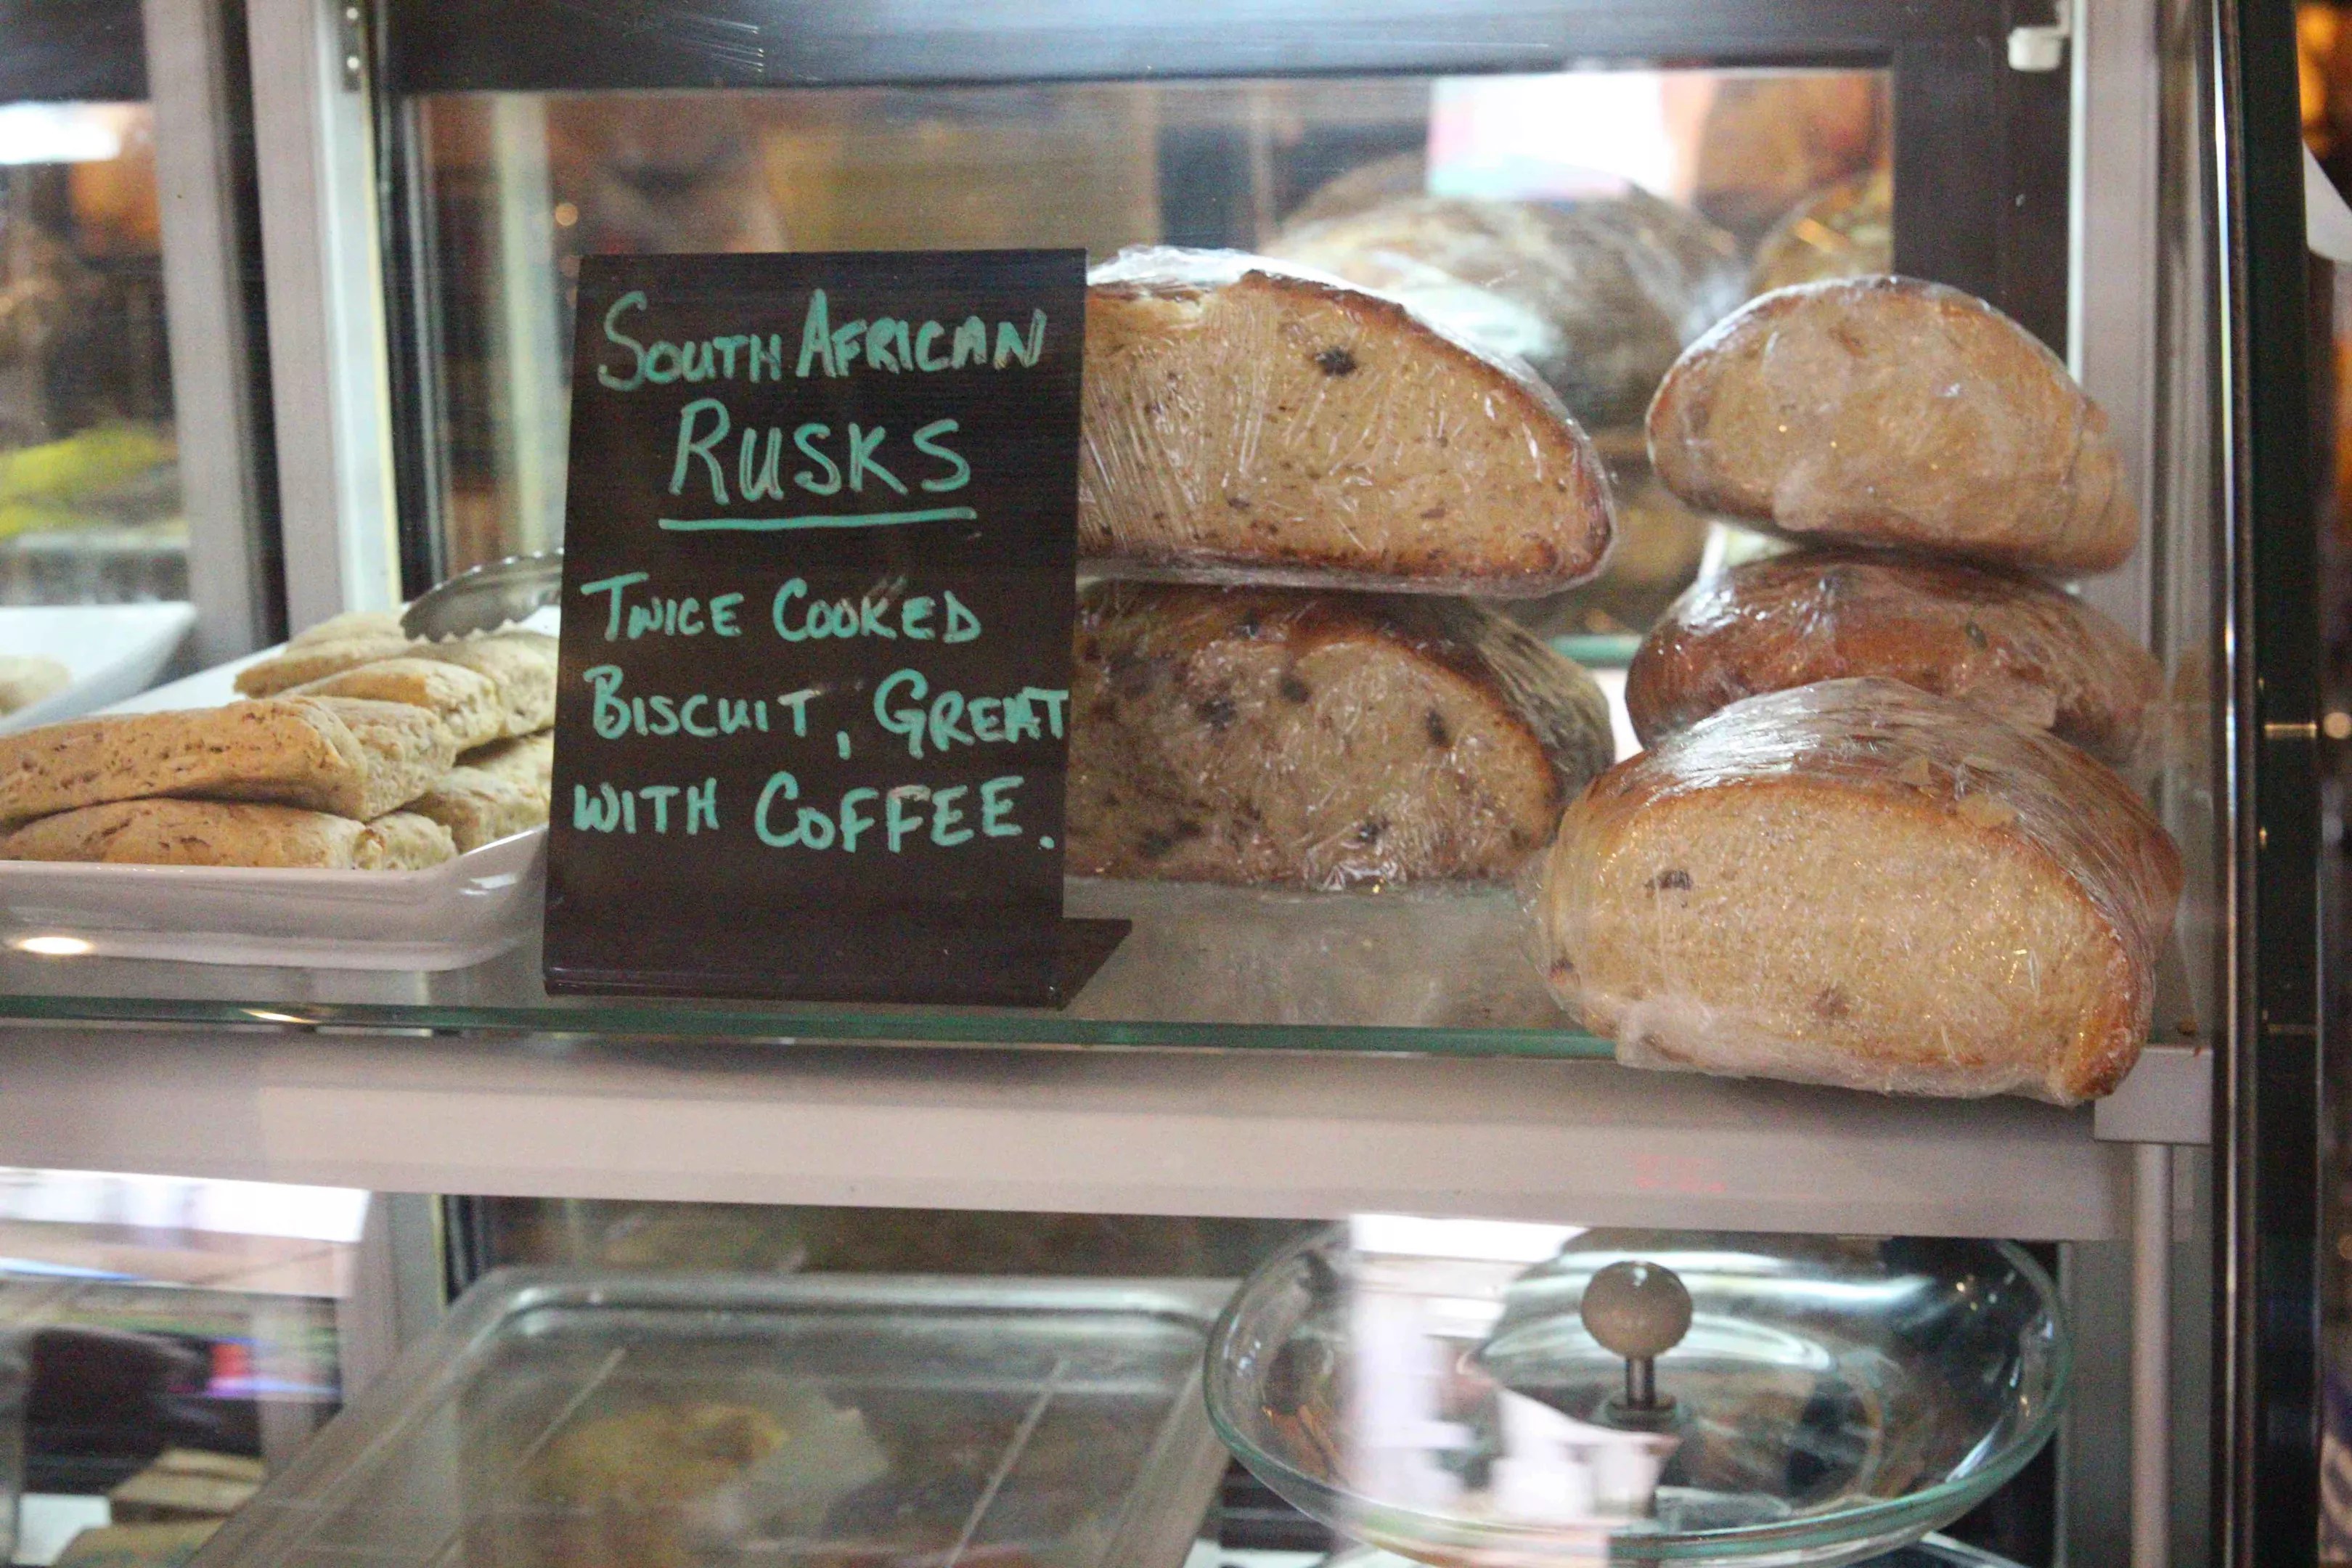 South African
Rusks
Twice Cooked
Biscuit, Great
with Coffee.